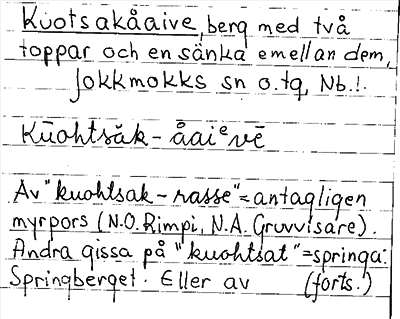 Kuotsakåaive, berg med två
toppar och en sänka emellan dem,
Jokkmokks sn o. tg, Nb.l.
Kūohtsăk-åaiᵉvē
Av "kuohtsak-rasse"=antagligen
myrpors (N.O. Rimpi, N.A. Gruvvisare).
Andra gissa på "kuohtsat"=springa:
Springberget. Eller av (forts.)